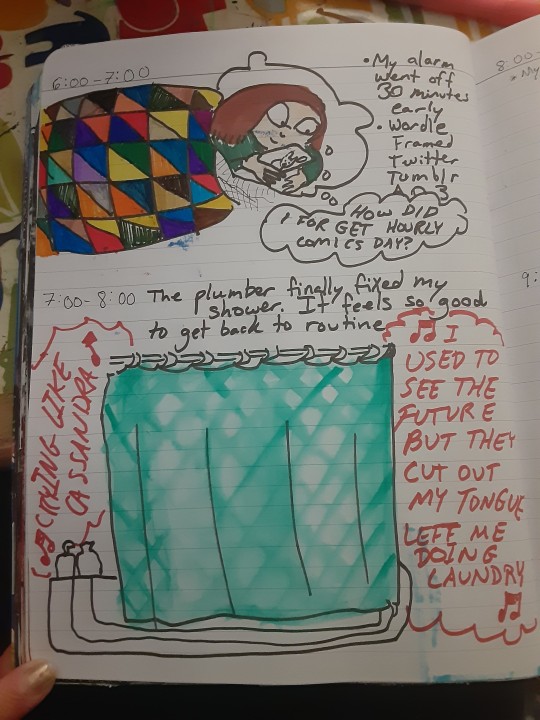 6:00-7:00
• My alarm
went off
30 minutes
early
• Wordle
Framed
Twitter
Tumblr
AO3
HOW DID
I FORGET HOURLY
COMICS DAY?
7:00-8:00 The plumber finally fixed my
shower. It feels so good
to get back to routine
♫ CRYING LIKE
CASSANDRA ♪
♫ I
USED TO
SEE THE
FUTURE
BUT THEY
CUT OUT
MY TONGUE
LEFT ME
DOING
LAUNDRY
♫
8:00-
• My
9: